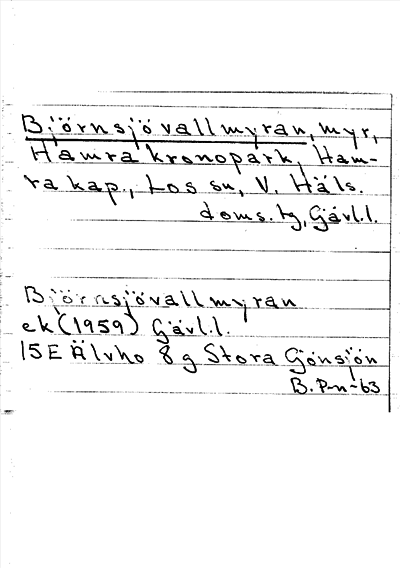 Björnsjövallmyran, myr,
Hamra kronopark, Ham-
ra kap., Los sn, V. Häls.
doms.tg, Gävl.l.
Björnsjövallmyran
ek (1959) Gävl.l.
15E Älvho 8g Stora Gönsjön
B. P-n-63